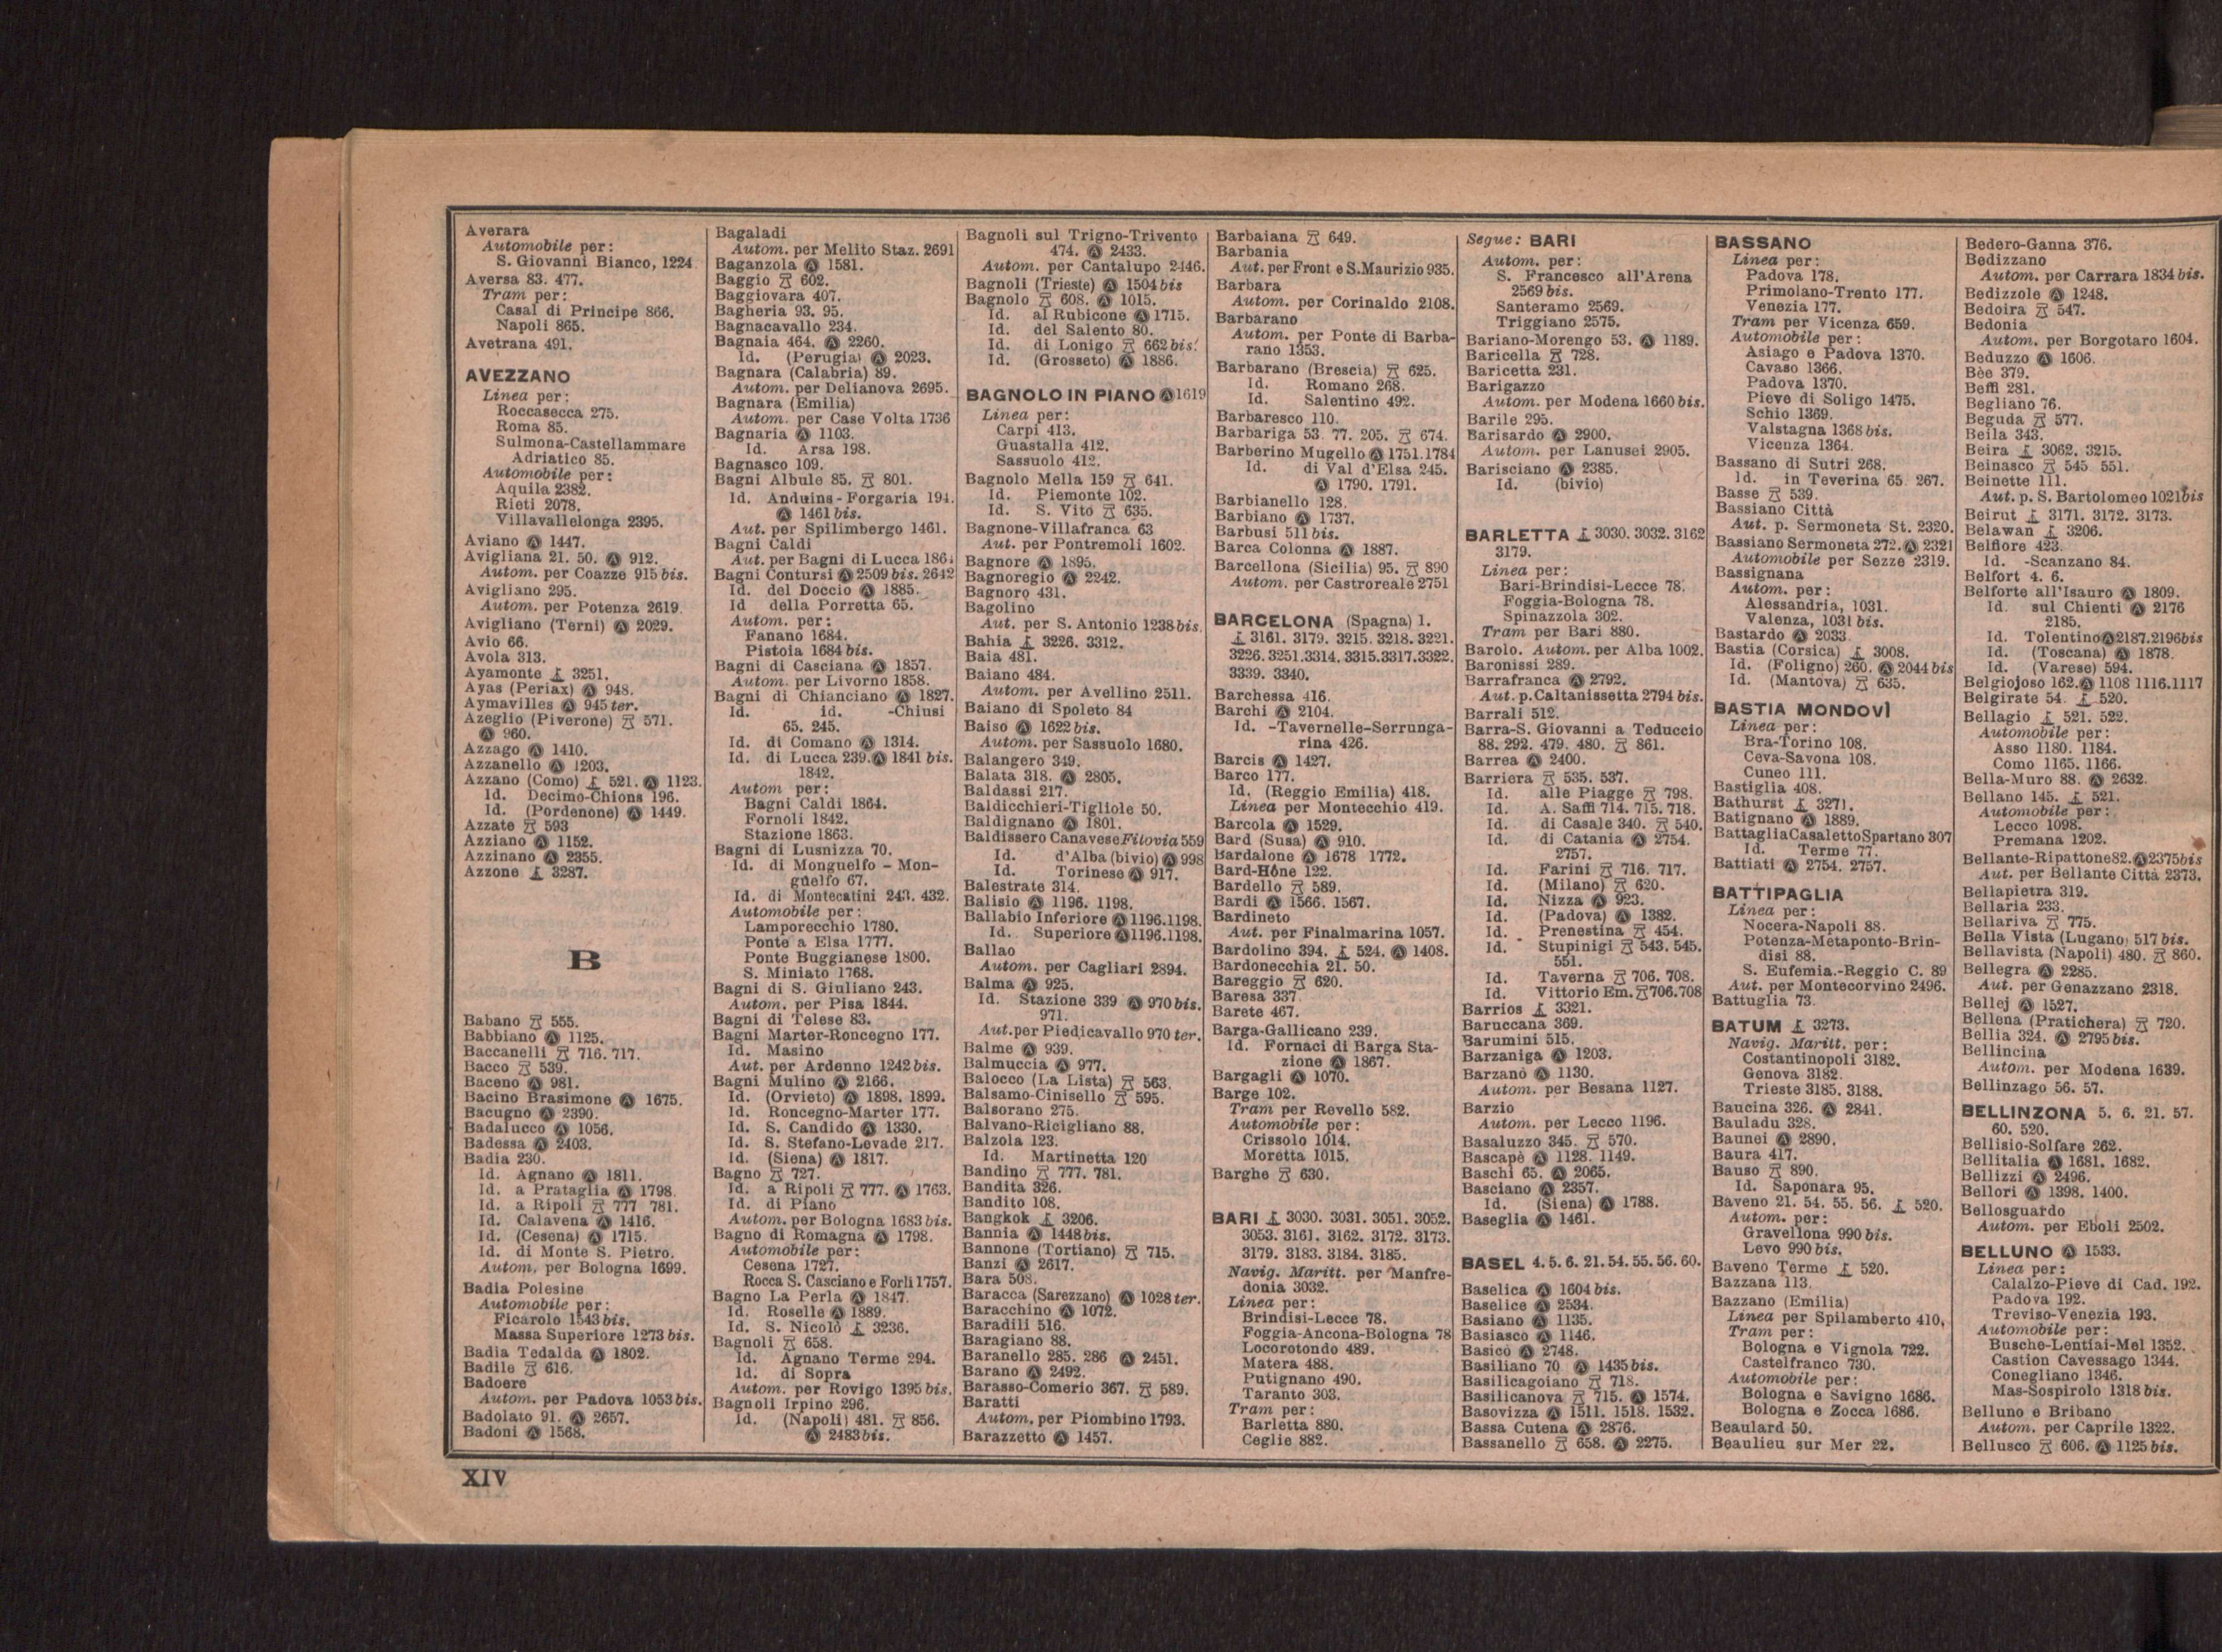 Averara
Automobile per:
S. Giovanni Bianco, 1224
Aversa 83. 477.
Tram per:
Casal di Principe 866.
Napoli 865.
Avetrana 491.
AVEZZANO
Linea per:
Roccasecca 275.
Roma 85.
Sulmona-Castellammare
Adriatico 85.
Automobile per:
Aquila 2382.
Rieti 2078.
Villavallelonga 2395.
Aviano Ⓐ 1447.
Avigliana 21. 50. Ⓐ 912.
Autom. per Coazze 915 bis.
Avigliano 295.
Autom. per Potenza 2619.
Avigliano (Terni) Ⓐ 2029.
Avio 66.
Avola 313.
Ayamonte 3251.
Ayas (Periax) Ⓐ 948.
Aymavilles Ⓐ 945 ter.
Azeglio (Piverone) 571.
Ⓐ 960.
Azzago Ⓐ 1410.
Azzanello Ⓐ 1203.
Azzano (Como) 521. Ⓐ 1123.
Id. Decimo-Chions 196.
Id. (Pordenone) Ⓐ 1449.
Azzate 593
Azziano Ⓐ 1152.
Azzinano Ⓐ 2355.
Azzone 3287.
B
Babano 555.
Babbiano Ⓐ 1125.
Baccanelli 716. 717.
Bacco 539.
Baceno Ⓐ 981.
Bacino Brasimone Ⓐ 1675.
Bacugno Ⓐ 2390.
Badalucco Ⓐ 1056.
Badessa Ⓐ 2403.
Badia 230.
Id. Agnano Ⓐ 1811.
Id. a Prataglia Ⓐ 1798.
Id. a Ripoli 777 781.
Id. Calavena Ⓐ 1416.
Id. (Cesena) Ⓐ 1715.
Id. di Monte S. Pietro.
Autom. per Bologna 1699.
Badia Polesine
Automobile per:
Ficarolo 1543 bis.
Massa Superiore 1273 bis.
Badia Tedalda Ⓐ 1802.
Badile 616.
Badoere
Autom. per Padova 1053 bis.
Badolato 91. Ⓐ 2657.
Badoni Ⓐ 1568.
Bagaladi
Autom. per Melito Staz. 2691
Baganzola Ⓐ 1581.
Baggio 602.
Baggiovara 407.
Bagheria 93. 95.
Bagnacavallo 234.
Bagnaia 464. Ⓐ 2260.
Id. (Perugia) Ⓐ 2023.
Bagnara (Calabria) 89.
Autom. per Delianova 2695.
Bagnara (Emilia)
Autom. per Case Volta 1736
Bagnaria Ⓐ 1103.
Id. Arsa 198.
Bagnasco 109.
Bagni Albule 85. 801.
Id. Anduins-Forgaria 194.
Ⓐ 1461 bis.
Aut. per Spilimbergo 1461.
Bagni Caldi
Aut. per Bagni di Lucca 1864
Bagni Contursi Ⓐ 2509 bis. 2642
Id. del Doccio Ⓐ 1885.
Id della Porretta 65.
Autom. per:
Fanano 1684.
Pistoia 1684 bis.
Bagni di Casciana Ⓐ 1857.
Autom. per Livorno 1858.
Bagni di Chianciano Ⓐ 1827.
Id. id. -Chiusi
65. 245.
Id. di Comano Ⓐ 1314.
Id. di Lucca 239. Ⓐ 1841 bis.
1842.
Autom per:
Bagni Caldi 1864.
Fornoli 1842.
Stazione 1863.
Bagni di Lusnizza 70.
Id. di Monguelfo - Mon-
guelfo 67.
Id. di Montecatini 243. 432.
Automobile per:
Lamporecchio 1780.
Ponte a Elsa 1777.
Ponte Buggianese 1800.
S. Miniato 1768.
Bagni di S. Giuliano 243.
Autom. per Pisa 1844.
Bagni di Telese 83.
Bagni Marter-Roncegno 177.
Id. Masino
Aut. per Ardenno 1242 bis.
Bagni Mulino Ⓐ 2166.
Id. (Orvieto) Ⓐ 1898. 1899.
Id. Roncegno-Marter 177.
Id. S. Candido Ⓐ 1330.
Id. S. Stefano-Levade 217.
Id. (Siena) Ⓐ 1817.
Bagno 727.
Id. a Ripoli 777. Ⓐ 1763.
Id. di Piano
Autom. per Bologna 1683 bis.
Bagno di Romagna Ⓐ 1798.
Automobile per:
Cesena 1727.
Rocca S. Casciano e Forlì 1757.
Bagno La Perla Ⓐ 1847.
Id. Roselle Ⓐ 1889.
Id. S. Nicolò 3236.
Bagnoli 658.
Id. Agnano Terme 294.
Id. di Sopra
Autom. per Rovigo 1395 bis.
Bagnoli Irpino 296.
Id. (Napoli) 481. 856.
Ⓐ 2483 bis.
Bagnoli sul Trigno-Trivento
474. Ⓐ 2433.
Autom. per Cantalupo 2446.
Bagnoli (Trieste) Ⓐ 1504 bis
Bagnolo 608. Ⓐ 1015.
Id. al Rubicone Ⓐ 1715.
Id. del Salento 80.
Id. di Lonigo 662 bis.
Id. (Grosseto) Ⓐ 1886.
BAGNOLO IN PIANO Ⓐ 1619
Linea per:
Carpi 413.
Guastalla 412.
Sassuolo 412.
Bagnolo Mella 159 641.
Id. Piemonte 102.
Id. S. Vito 635.
Bagnone-Villafranca 63
Aut. per Pontremoli 1602.
Bagnore Ⓐ 1895.
Bagnoregio Ⓐ 2242.
Bagnoro 431.
Bagolino
Aut. per S. Antonio 1238 bis.
Bahia 3226. 3312.
Baia 481.
Baiano 484.
Autom. per Avellino 2511.
Baiano di Spoleto 84
Baiso Ⓐ 1622 bis.
Autom. per Sassuolo 1680.
Balangero 349.
Balata 318. Ⓐ 2805.
Baldassi 217.
Baldicchieri-Tigliole 50.
Baldignano Ⓐ 1801.
Baldissero Canavese Filovia 559
Id. d'Alba (bivio) Ⓐ 998
Id. Torinese Ⓐ 917.
Balestrate 314.
Balisio Ⓐ 1196. 1198.
Ballabio Inferiore Ⓐ 1196.1198.
Id. Superiore Ⓐ 1196.1198.
Ballao
Autom. per Cagliari 2894.
Balma Ⓐ 925.
Id. Stazione 339 Ⓐ 970 bis.
971.
Aut. per Piedicavallo 970 ter.
Balme Ⓐ 939.
Balmuccia Ⓐ 977.
Balocco (La Lista) 563.
Balsamo-Cinisello 595.
Balsorano 275.
Balvano-Ricigliano 88.
Balzola 123.
Id. Martinetta 120
Bandino 777. 781.
Bandita 326.
Bandito 108.
Bangkok 3206.
Bannia Ⓐ 1448 bis.
Bannone (Tortiano) 715.
Banzi Ⓐ 2617.
Bara 508.
Baracca (Sarezzano) Ⓐ 1028 ter.
Baracchino Ⓐ 1072.
Baradili 516.
Baragiano 88.
Baranello 285. 286 Ⓐ 2451.
Barano Ⓐ 2492.
Barasso-Comerio 367. 589.
Baratti
Autom. per Piombino 1793.
Barazzetto Ⓐ 1457.
Barbaiana 649.
Barbania
Aut. per Front e S. Maurizio 935.
Barbara
Autom. per Corinaldo 2108.
Barbarano
Autom. per Ponte di Barba-
rano 1353.
Barbarano (Brescia) 625.
Id. Romano 268.
Id. Salentino 492.
Barbaresco 110.
Barbariga 53 77. 205. 674.
Barberino Mugello Ⓐ 1751.1784
Id. di Val d'Elsa 245.
Ⓐ 1790. 1791.
Barbianello 128.
Barbiano Ⓐ 1737.
Barbusi 511 bis.
Barca Colonna Ⓐ 1887.
Barcellona (Sicilia) 95. 890
Autom. per Castroreale 2751
BARCELONA (Spagna) 1.
3161. 3179. 3215. 3218. 3221.
3226. 3251. 3314. 3315. 3317. 3322.
3339. 3340.
Barchessa 416.
Barchi Ⓐ 2104.
Id. -Tavernelle-Serrunga-
rina 426.
Barcis Ⓐ 1427.
Barco 177.
Id. (Reggio Emilia) 418.
Linea per Montecchio 419.
Barcola Ⓐ 1529.
Bard (Susa) Ⓐ 910.
Bardalone Ⓐ 1678 1772.
Bard-Hône 122.
Bardello 589.
Bardi Ⓐ 1566. 1567.
Bardineto
Aut. per Finalmarina 1057.
Bardolino 394. 524. Ⓐ 1408.
Bardonecchia 21. 50.
Bareggio 620.
Baresa 337
Barete 467.
Barga-Gallicano 239.
Id. Fornaci di Barga Sta-
zione Ⓐ 1867.
Bargagli Ⓐ 1070.
Barge 102.
Tram per Revello 582.
Automobile per:
Crissolo 1014.
Moretta 1015.
Barghe 630.
BARI 3030. 3031. 3051. 3052.
3053. 3161. 3162. 3172. 3173.
3179. 3183. 3184. 3185.
Navig. Maritt. per Manfre-
donia 3032.
Linea per:
Brindisi-Lecce 78.
Foggia-Ancona-Bologna 78
Locorotondo 489.
Matera 488.
Putignano 490.
Taranto 303.
Tram per:
Barletta 880.
Ceglie 882.
Segue: BARI
Autom. per:
S. Francesco all'Arena
2569 bis.
Santeramo 2569.
Triggiano 2575.
Bariano-Morengo 53. Ⓐ 1189.
Baricella 728.
Baricetta 231.
Barigazzo
Autom. per Modena 1660 bis.
Barile 295.
Barisardo Ⓐ 2900.
Autom. per Lanusei 2905.
Barisciano Ⓐ 2385.
Id. (bivio)
BARLETTA 3030. 3032. 3162
3179.
Linea per:
Bari-Brindisi-Lecce 78.
Foggia-Bologna 78.
Spinazzola 302.
Tram per Bari 880.
Barolo. Autom. per Alba 1002.
Baronissi 289.
Barrafranca Ⓐ 2792.
Aut. p. Caltanissetta 2794 bis.
Barrali 512.
Barra-S. Giovanni a Teduccio
88. 292. 479. 480. 861.
Barrea Ⓐ 2400.
Barriera 535. 537.
Id. alle Piagge 798.
Id. A. Saffi 714. 715. 718.
Id. di Casale 340. 540.
Id. di Catania Ⓐ 2754.
2757.
Id. Farini 716. 717.
Id. (Milano) 620.
Id. Nizza Ⓐ 923.
Id. (Padova) Ⓐ 1382.
Id. Prenestina 454.
Id. Stupinigi 543. 545.
551.
Id. Taverna 706. 708.
Id. Vittorio Em. 706.708
Barrios 3321.
Baruccana 369.
Barumini 515.
Barzaniga Ⓐ 1203.
Barzanò Ⓐ 1130.
Autom. per Besana 1127.
Barzio
Autom. per Lecco 1196.
Basaluzzo 345. 570.
Bascapè Ⓐ 1128. 1149.
Baschi 65. Ⓐ 2065.
Basciano Ⓐ 2357.
Id. (Siena) Ⓐ 1788.
Baseglia Ⓐ 1461.
BASEL 4. 5. 6. 21. 54. 55. 56. 60.
Baselica Ⓐ 1604 bis.
Baselice Ⓐ 2534.
Basiano Ⓐ 1135.
Basiasco Ⓐ 1146.
Basicò Ⓐ 2748.
Basiliano 70 Ⓐ 1435 bis.
Basilicagoiano 718.
Basilicanova 715. Ⓐ 1574.
Basovizza Ⓐ 1511. 1518. 1532.
Bassa Cutena Ⓐ 2876.
Bassanello 658. Ⓐ 2275.
BASSANO
Linea per:
Padova 178.
Primolano-Trento 177.
Venezia 177.
Tram per Vicenza 659.
Automobile per:
Asiago e Padova 1370.
Cavaso 1366.
Padova 1370.
Pieve di Soligo 1475.
Schio 1369.
Valstagna 1368 bis.
Vicenza 1364.
Bassano di Sutri 268.
Id. in Teverina 65. 267.
Basse 539.
Bassiano Città
Aut. p. Sermoneta St. 2320.
Bassiano Sermoneta 272. Ⓐ 2321
Automobile per Sezze 2319.
Bassignana
Autom. per:
Alessandria, 1031.
Valenza, 1031 bis.
Bastardo Ⓐ 2033
Bastia (Corsica) 3008.
Id. (Foligno) 260. Ⓐ 2044 bis
Id. (Mantova) 635.
BASTIA MONDOVÌ
Linea per:
Bra-Torino 108.
Ceva-Savona 108.
Cuneo 111.
Bastiglia 408.
Bathurst 3271.
Batignano Ⓐ 1889.
Battaglia Casaletto Spartano 307
Id. Terme 77.
Battiati Ⓐ 2754. 2757.
BATTIPAGLIA
Linea per:
Nocera-Napoli 88.
Potenza-Metaponto-Brin-
disi 88.
S. Eufemia.-Reggio C. 89
Aut. per Montecorvino 2496.
Battuglia 73.
BATUM 3273.
Navig. Maritt. per:
Costantinopoli 3182.
Genova 3182.
Trieste 3185. 3188.
Baucina 326. Ⓐ 2841.
Bauladu 328.
Baunei Ⓐ 2890.
Baura 417.
Bauso 890.
Id. Saponara 95.
Baveno 21. 54. 55. 56. 520.
Autom. per:
Gravellona 990 bis.
Levo 990 bis.
Baveno Terme 520.
Bazzana 113.
Bazzano (Emilia)
Linea per Spilamberto 410.
Tram per:
Bologna e Vignola 722.
Castelfranco 730.
Automobile per:
Bologna e Savigno 1686.
Bologna e Zocca 1686.
Beaulard 50.
Beaulieu sur Mer 22.
Bedero-Ganna 376.
Bedizzano
Autom. per Carrara 1834 bis.
Bedizzole Ⓐ 1248.
Bedoira 547.
Bedonia
Autom. per Borgotaro 1604.
Beduzzo Ⓐ 1606.
Bèe 379.
Beffi 281.
Begliano 76.
Beguda 577.
Beila 343.
Beira 3062. 3215.
Beinasco 545 551.
Beinette 111.
Aut. p. S. Bartolomeo 1021 bis
Beirut 3171. 3172. 3173.
Belawan 3206.
Belfiore 423.
Id. -Scanzano 84.
Belfort 4. 6.
Belforte all'Isauro Ⓐ 1809.
Id. sul Chienti Ⓐ 2176
2185.
Id. Tolentino Ⓐ 2187.2196 bis
Id. (Toscana) Ⓐ 1878.
Id. (Varese) 594.
Belgiojoso 162. Ⓐ 1108 1116.1117
Belgirate 54. 520.
Bellagio 521. 522.
Automobile per:
Asso 1180. 1184.
Como 1165. 1166.
Bella-Muro 88. Ⓐ 2632.
Bellano 145. 521.
Automobile per:
Lecco 1098.
Premana 1202.
Bellante-Ripattone 82. Ⓐ 2375 bis
Aut. per Bellante Città 2373.
Bellapietra 319.
Bellaria 233.
Bellariva 775.
Bella Vista (Lugano) 517 bis.
Bellavista (Napoli) 480. 860.
Bellegra Ⓐ 2285.
Aut. per Genazzano 2318.
Bellej Ⓐ 1527.
Bellena (Pratichera) 720.
Bellia 324. Ⓐ 2795 bis.
Bellincina
Autom. per Modena 1639.
Bellinzago 56. 57.
BELLINZONA 5. 6. 21. 57.
60. 520.
Bellisio-Solfare 262.
Bellitalia Ⓐ 1681. 1682.
Bellizzi Ⓐ 2496.
Bellori Ⓐ 1398. 1400.
Bellosguardo
Autom. per Eboli 2502.
BELLUNO Ⓐ 1533.
Linea per:
Calalzo-Pieve di Cad. 192.
Padova 192.
Treviso-Venezia 193.
Automobile per:
Busche-Lentiai-Mel 1352.
Castion Cavessago 1344.
Conegliano 1346.
Mas-Sospirolo 1318 bis.
Belluno e Bribano
Autom. per Caprile 1322.
Bellusco 606. Ⓐ 1125 bis.
XIV